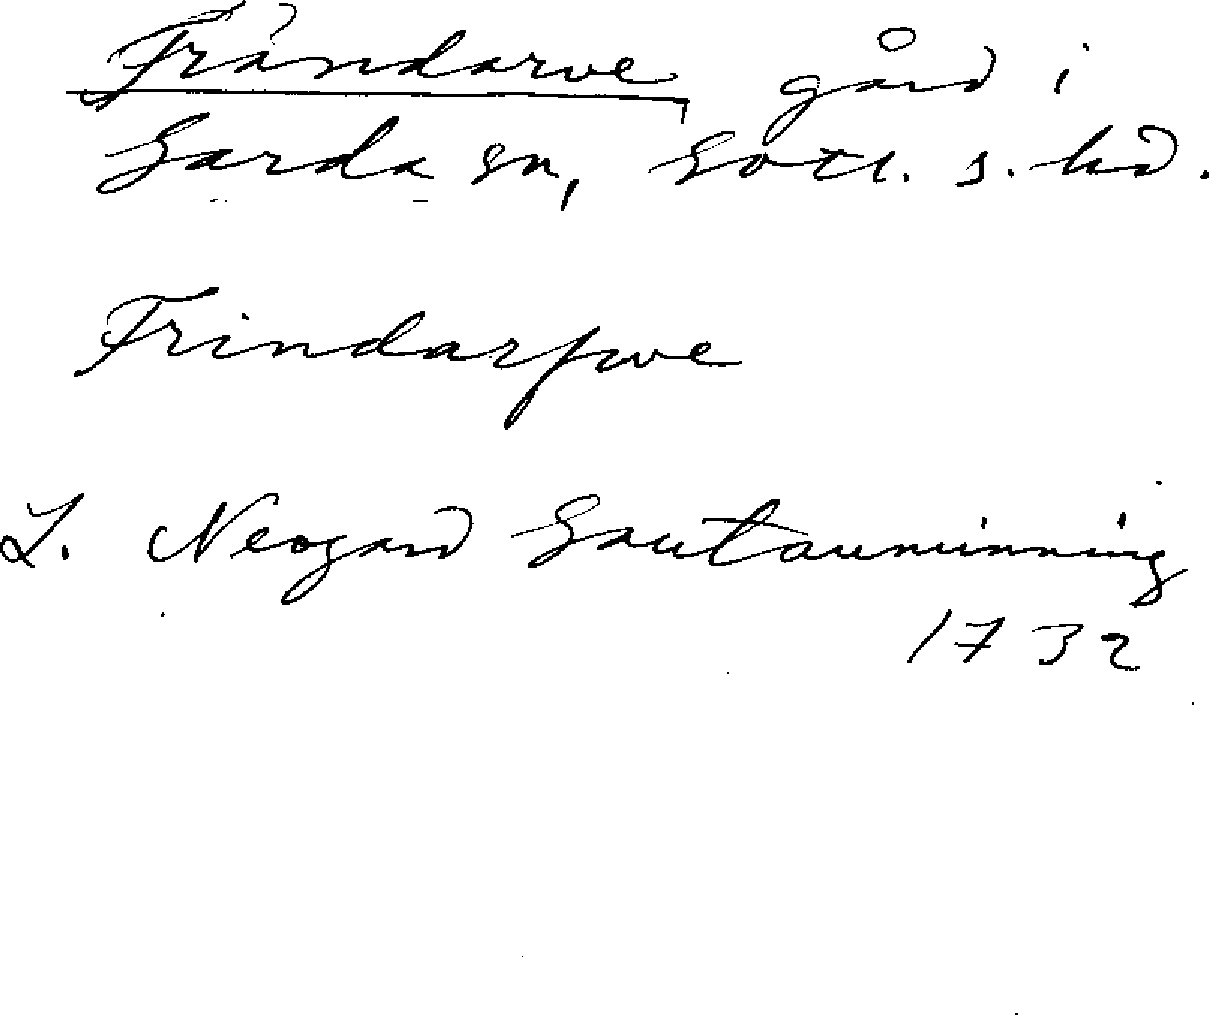 Frändarve, gård i
Garda sn, Gotl. s. hd.
Frindarfwe
L. Neogard Gautauminning
1732